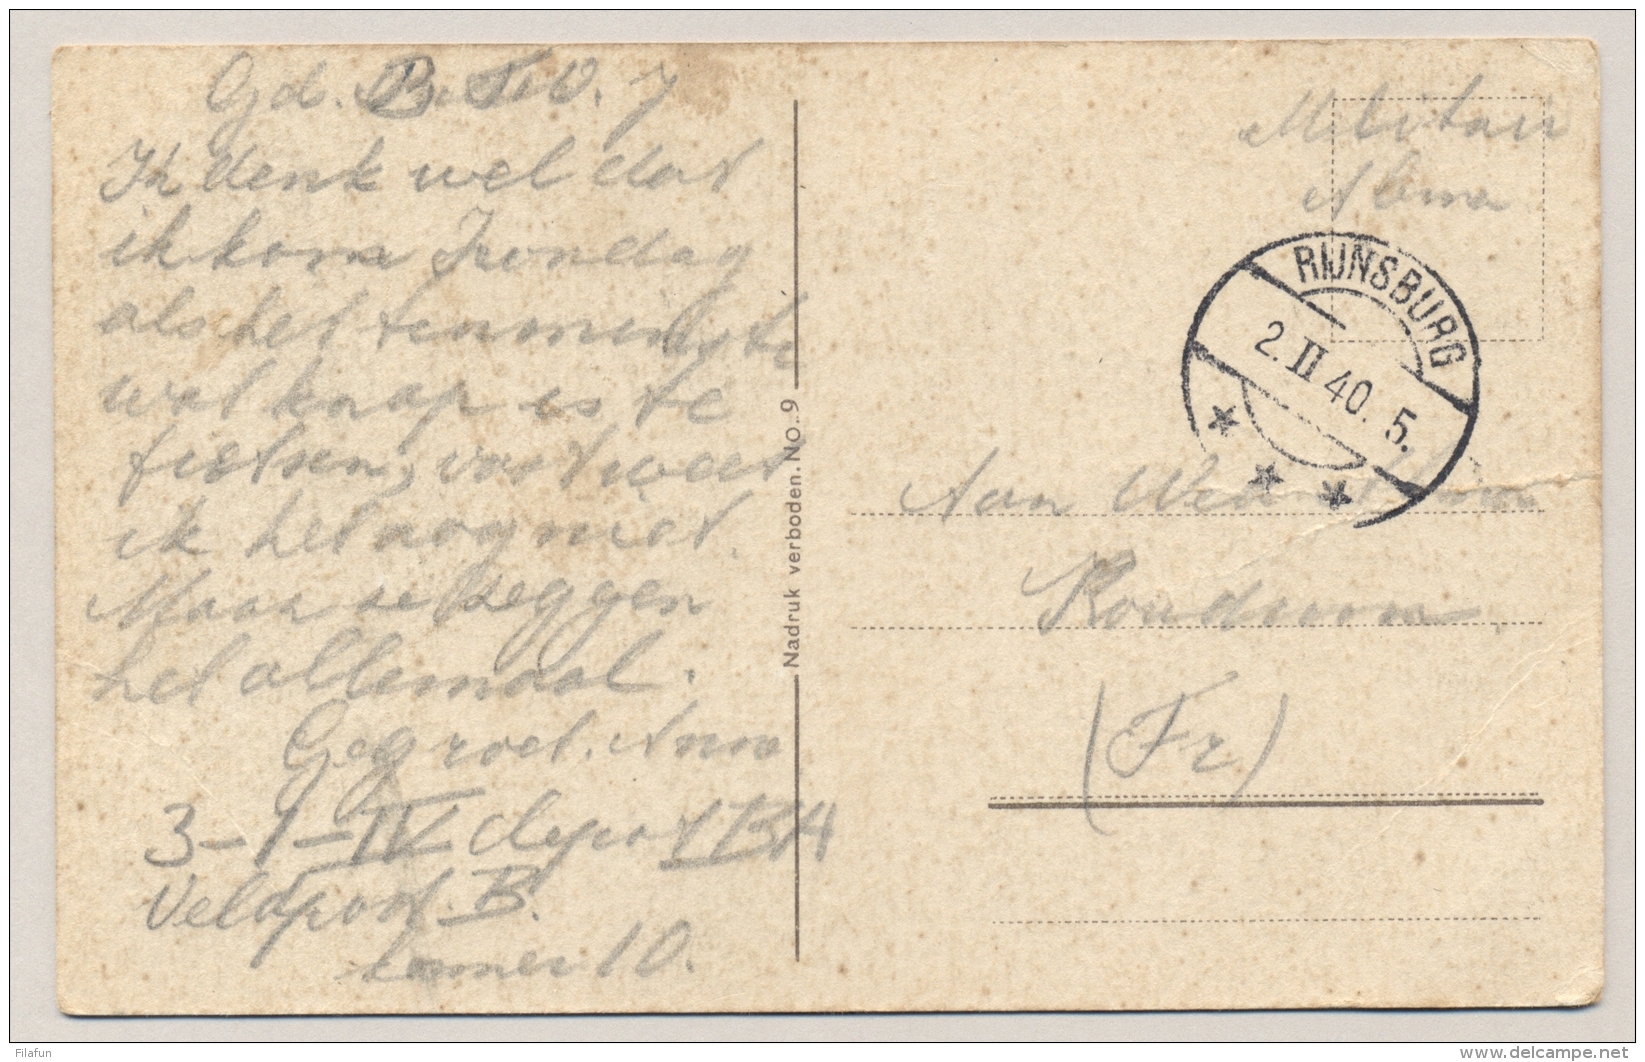 Gd. B. T. v. O. 7
Ik denk wel dat
ik kom Zondag
als het tenminste
wat knap is te
fietsen, vast weet
ik het nog niet.
Maar de zeggen
het allemaal.
Gegroet.
3-1-IV depot I BA
Veldpost B.
kamer 10.
Nadruk verboden. NO. 9
Militair
RIJNSBURG
2. II 40. 5.
Aan Wed
(Fr)
Filafun
www.delcampe.net